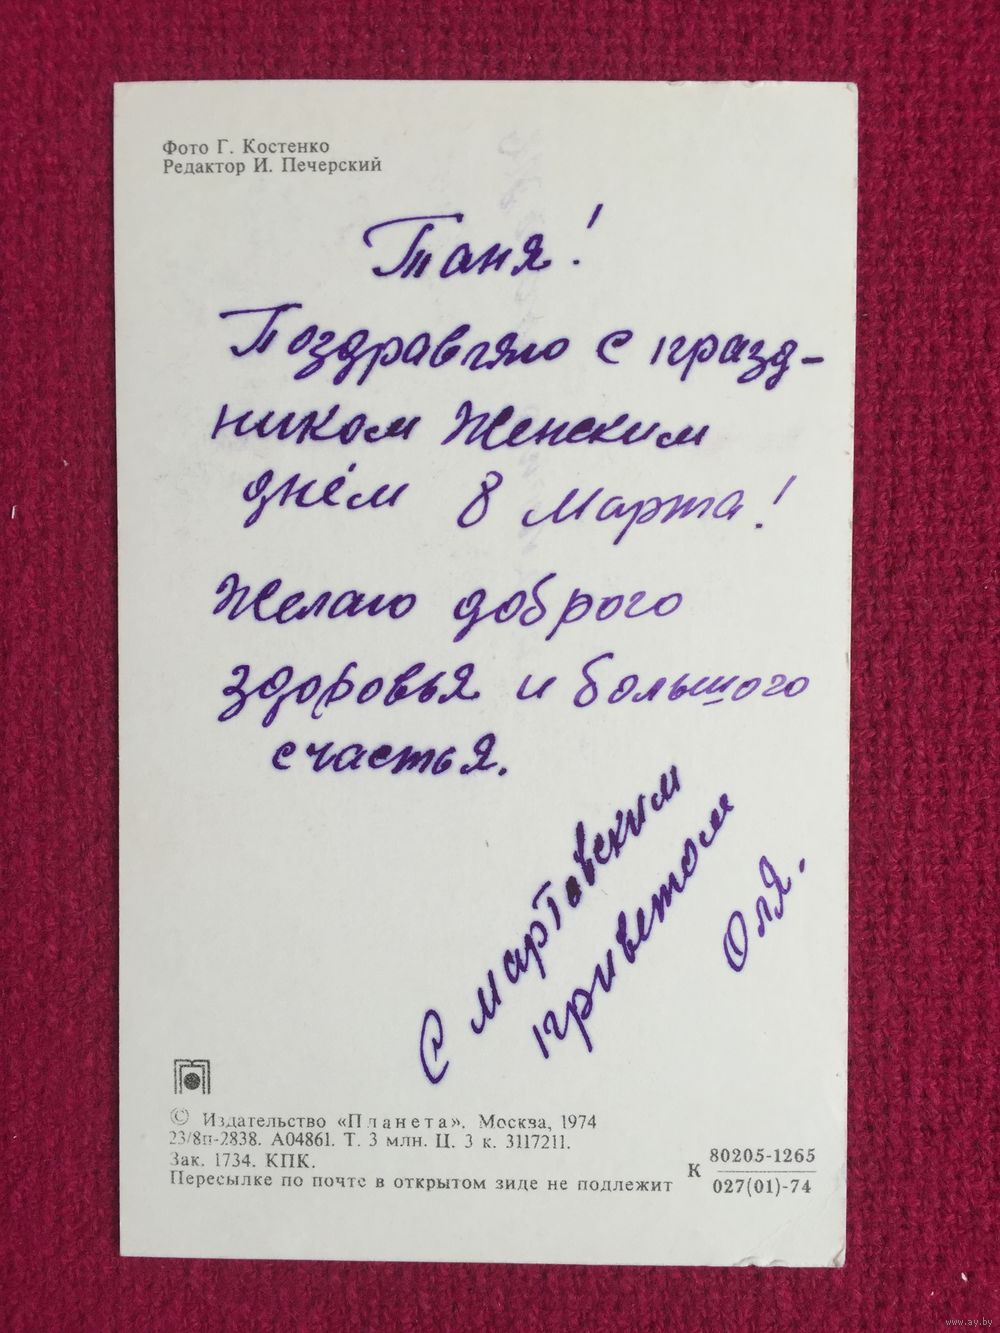 Фото Г. Костенко
Редактор И. Печерский
Таня!
Поздравляю с празд-
ником Женским
днём 8 Марта!
Желаю доброго
здоровья и большого
счастья.
С мартовским
приветом
Оля.
© Издательство «Планета». Москва, 1974
23/8п-2838. А04861. Т. 3 млн. Ц. 3 к. 3117211.
Зак. 1734. КПК.
Пересылке по почте в открытом виде не подлежит
К 80205-1265
027(01)-74
www.ay.by